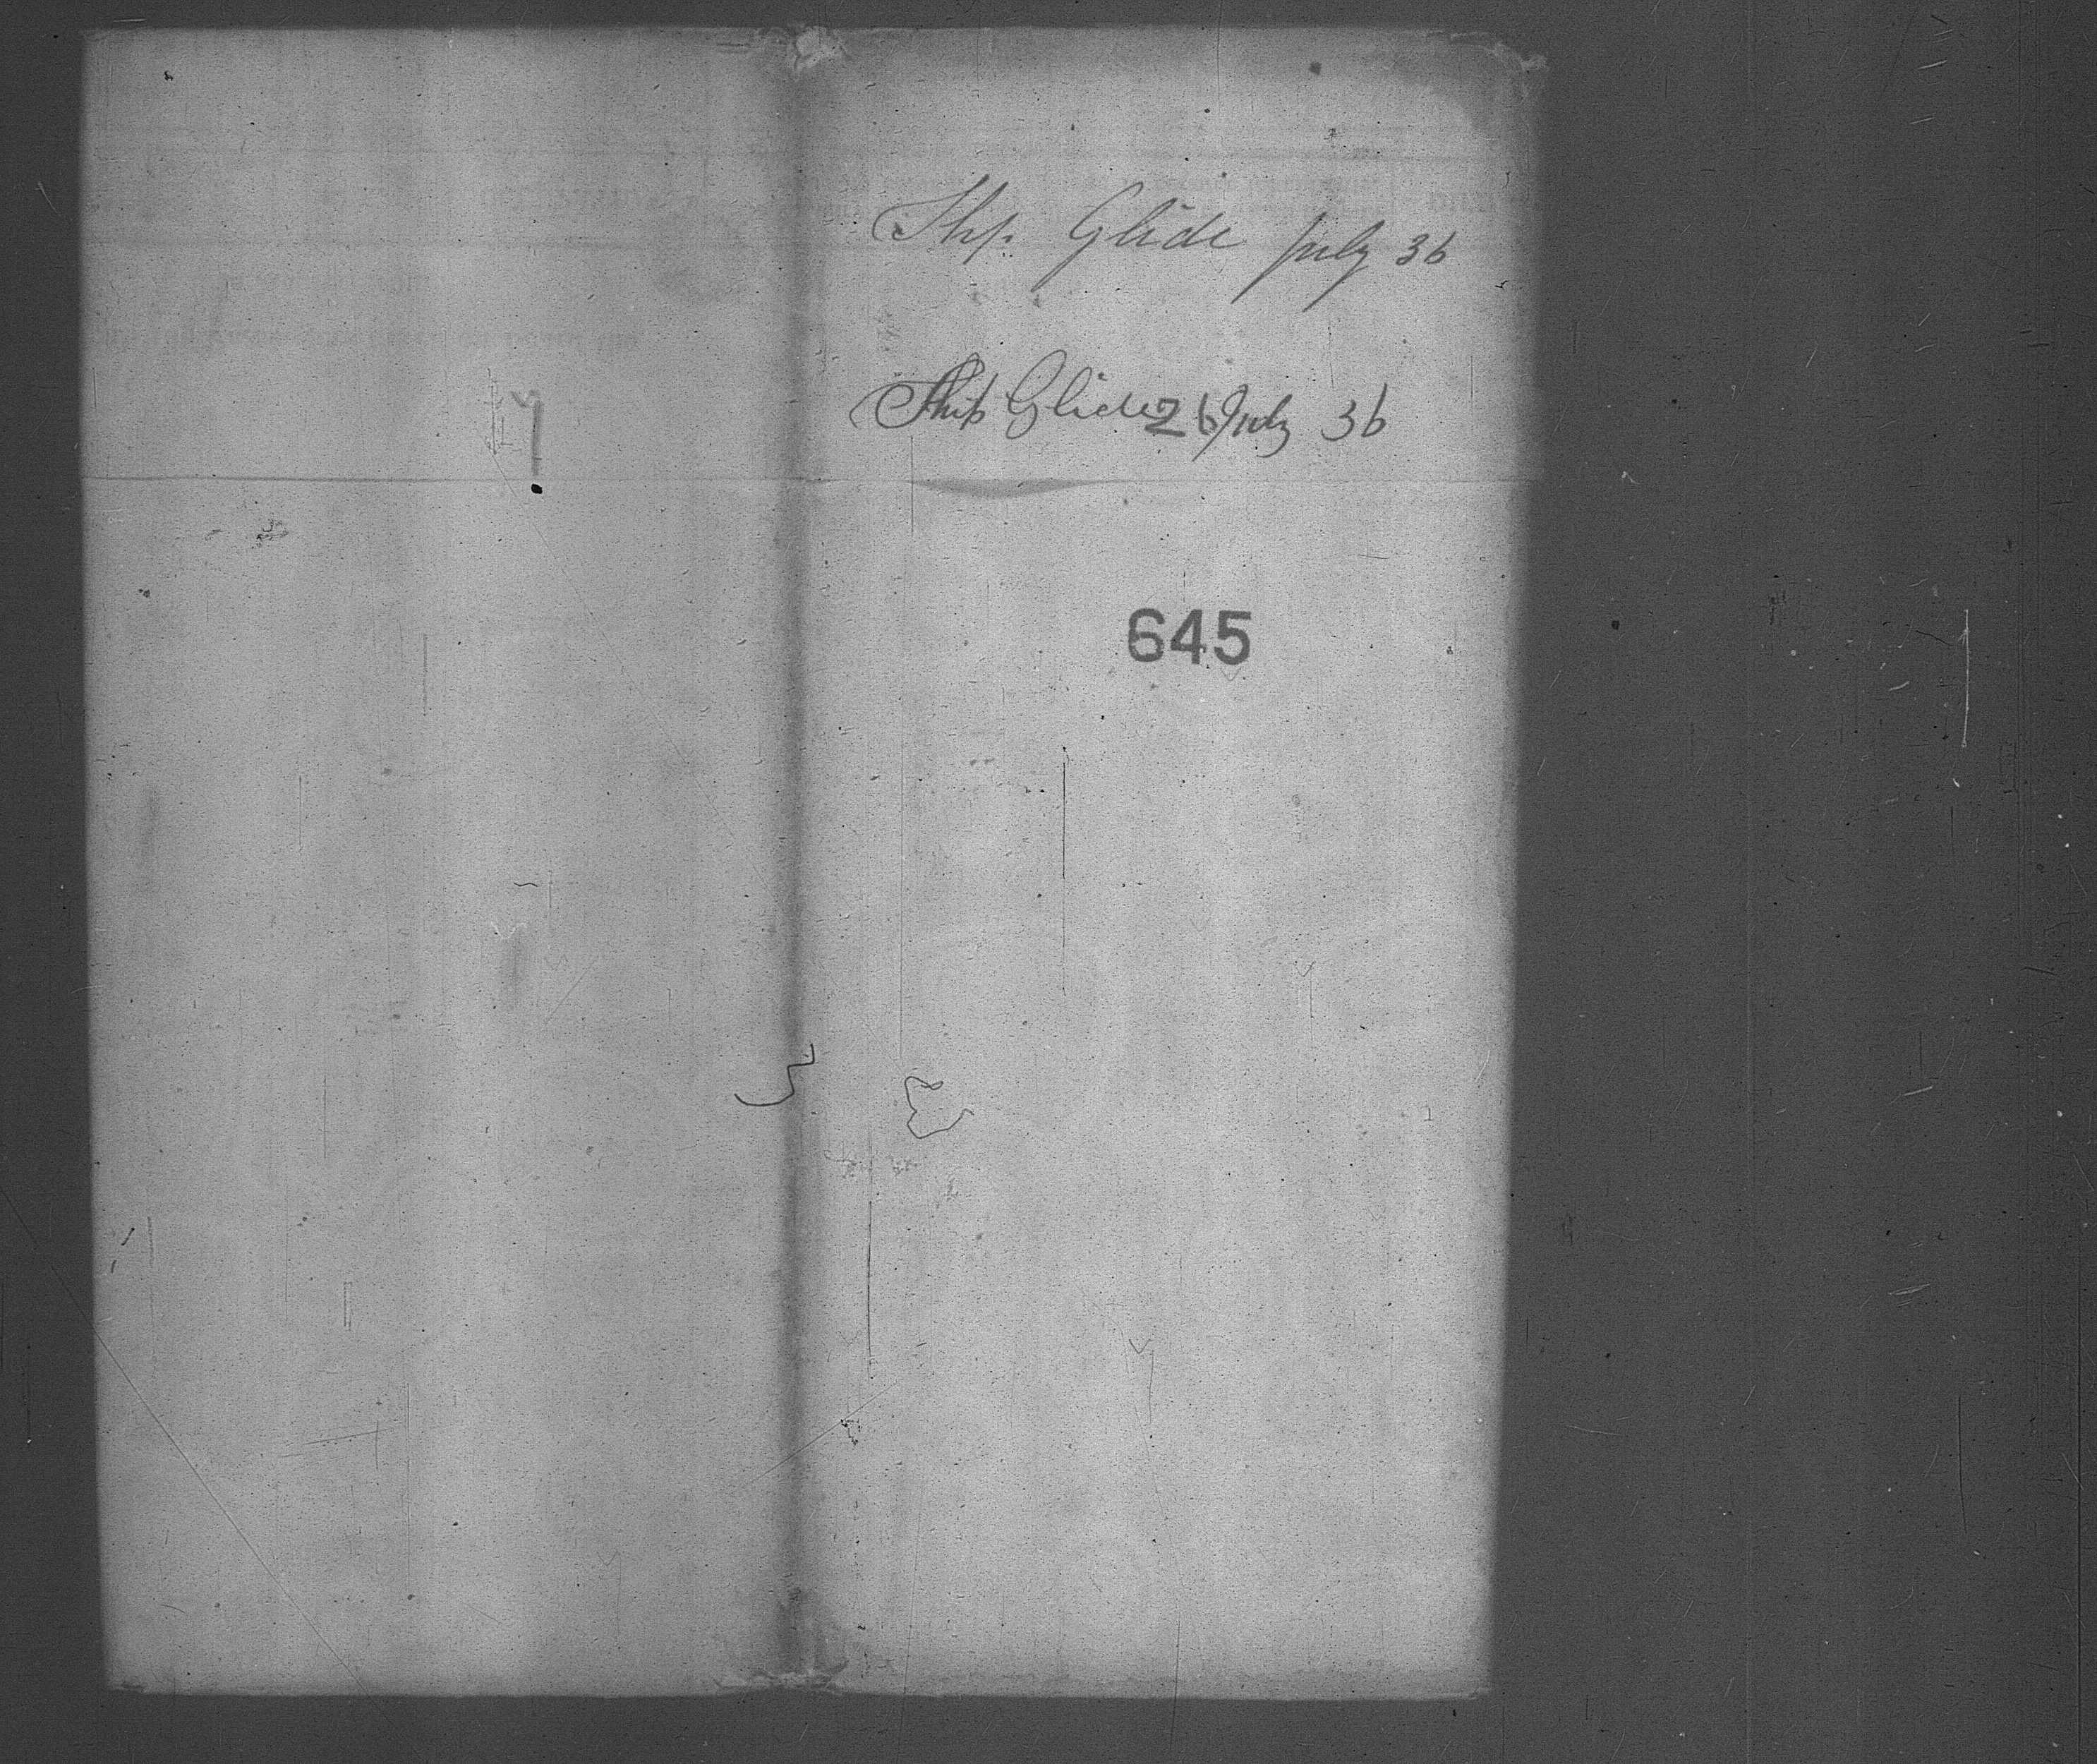 Ship Glide July 36
Ship Glide 26 July 36
645